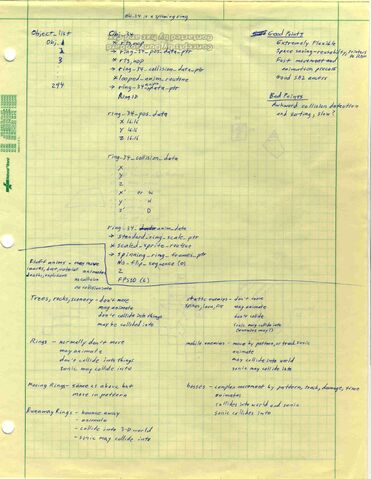 Obj 34 is a spinning ring
Object_list
Obj. 1
2
3
294
Obj_34
x rts, nop
→ ring_34_pos_data_ptr
x rts, nop
→ ring_34_collision_data_ptr
x looped_anim_routine
→ ring_34_anim_data_ptr
Ring ID
ring_34_pos_data
X 16.16
Y 16.16
Z 16.16
ring_34_collision_data
X
Y
Z
x' or W
y' H
z' D
ring_34_anim_data
→ standard_ring_scale_ptr
x scaled_sprite_routine
→ spinning_ring_frames_ptr
No_flip_sequence (0)
2
FPS10 (6)
Good Points
Extremely Flexible
Space saving - reusability, pointers to data
Fast movement and
animation process
Good SH2 access
Bad Points
Awkward collision detection
and sorting, slow?
Bluff anims - may move
sparks, dust, material animates
smoke, explosions no collision
no collision into
Trees, rocks, scenery - don't move
may animate
don't collide into things
may be collided into
Rings - normally don't move
may animate
don't collide into things
sonic may collide into
Moving Rings - same as above but
move in pattern
Runaway Rings - bounce away
- animate
- collide into 3-D world
- sonic may collide into
static enemies - don't move
spikes, lava, fire may animate
don't collide
sonic may collide into
(enemies may?)
mobile enemies - move by pattern, or track sonic
animate
may collide into world
sonic may collide into
bosses - complex movement by pattern, track, damage, time
animates
collides into world and sonic
sonic collides into